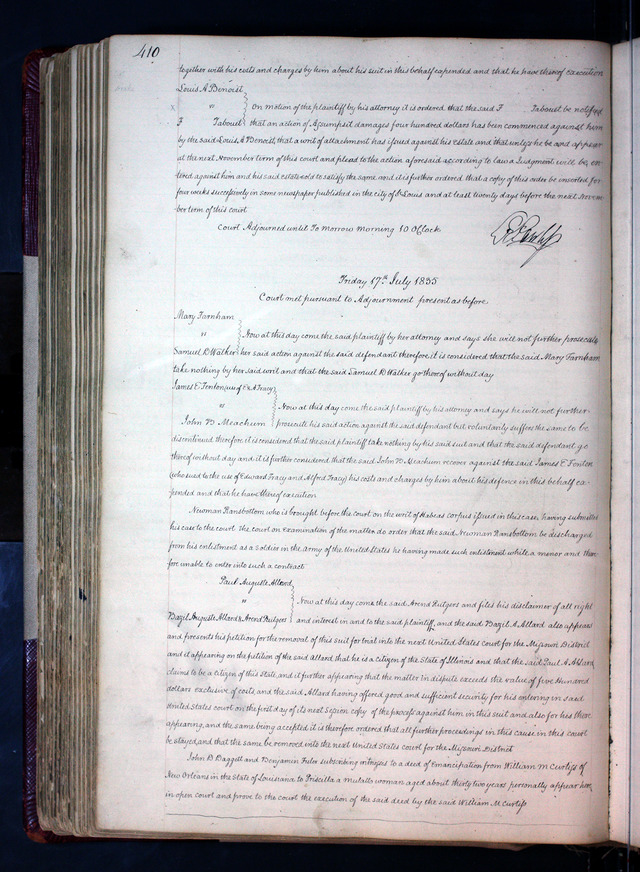 410
together with his costs and charges by him about his suit in this behalf expended and that he have thereof execution
Louis A Benoist
" On motion of the plaintiff by his attorney it is ordered that the said F Taboust be notified
F Taboust that an action of Assumpsit damages four hundred dollars has been commenced against him
by the said Louis A Benoist, that a writ of attachment has issued against his estate and that unless he be and appear
at the next November term of this court and plead to the action aforesaid according to law a Judgment will be en-
tered against him and his said estate sold to satisfy the same and it is further ordered that a copy of this order be inserted for
four weeks successively in some newspaper published in the city of St Louis and at least twenty days before the next Novem-
ber term of this court
Court Adjourned until To morrow morning 10 OClock
Friday 17th July 1835
Court met pursuant to Adjournment present as before
Mary Farnham
" Now at this day come the said plaintiff by her attorney and says she will not further prosecute
Samuel D Walker her said action against the said defendant therefore it is considered that the said Mary Farnham
take nothing by her said writ and that the said Samuel D Walker go thereof without day
James E Fenton (use of E & A Tracy)
" Now at this day come the said plaintiff by his attorney and says he will not further
John D Meachum prosecute his said action against the said defendant but voluntarily suffers the same to be
discontinued therefore it is considered that the said plaintiff take nothing by his said suit and that the said defendant go
thereof without day and it is further considered that the said John D Meachum recover against the said James E Fenton
(who sued to the use of Edward Tracy and Alfred Tracy) his costs and charges by him about his defence in this behalf ex-
pended and that he have thereof execution
Newman Ransbottom who is brought before the court on the writ of Habeas corpus issued in this case, having submitted
his case to the court the court on examination of the matter do order that the said Newman Ransbottom be discharged
from his enlistment as a soldier in the army of the United States he having made such enlistment while a minor and there-
fore unable to enter into such a contract
Paul Auguste Allard
" Now at this day come the said Arend Rutgers and files his disclaimer of all right
Bazil Auguste Allard & Arend Rutgers and interest in and to the said plaintiff, and the said Bazil A. Allard also appears
and presents his petition for the removal of this suit for trial into the next United States Court for the Missouri District
and it appearing on the petition of the said Allard that he is a citizen of the State of Illinois and that the said Paul A. Allard
claims to be a citizen of this state, and it further appearing that the matter in dispute exceeds the value of five Hundred
dollars exclusive of costs, and the said Allard having offered good and sufficient security for his entering in said
United States court on the first day of its next Session copy of the process against him in this suit and also for his there
appearing, and the same being accepted it is therefore ordered that all further proceedings in this cause in this court
be stayed, and that the same be removed into the next United States court for the Missouri District
John D Daggett and Benjamin subscribing witnesses to a deed of Emancipation from William M Curtiss of
New Orleans in the state of Louisiana to Priscilla a mulatto woman aged about thirty two years personally appear here
in open court and prove to the court the execution of the said deed by the said William M. Curtiss